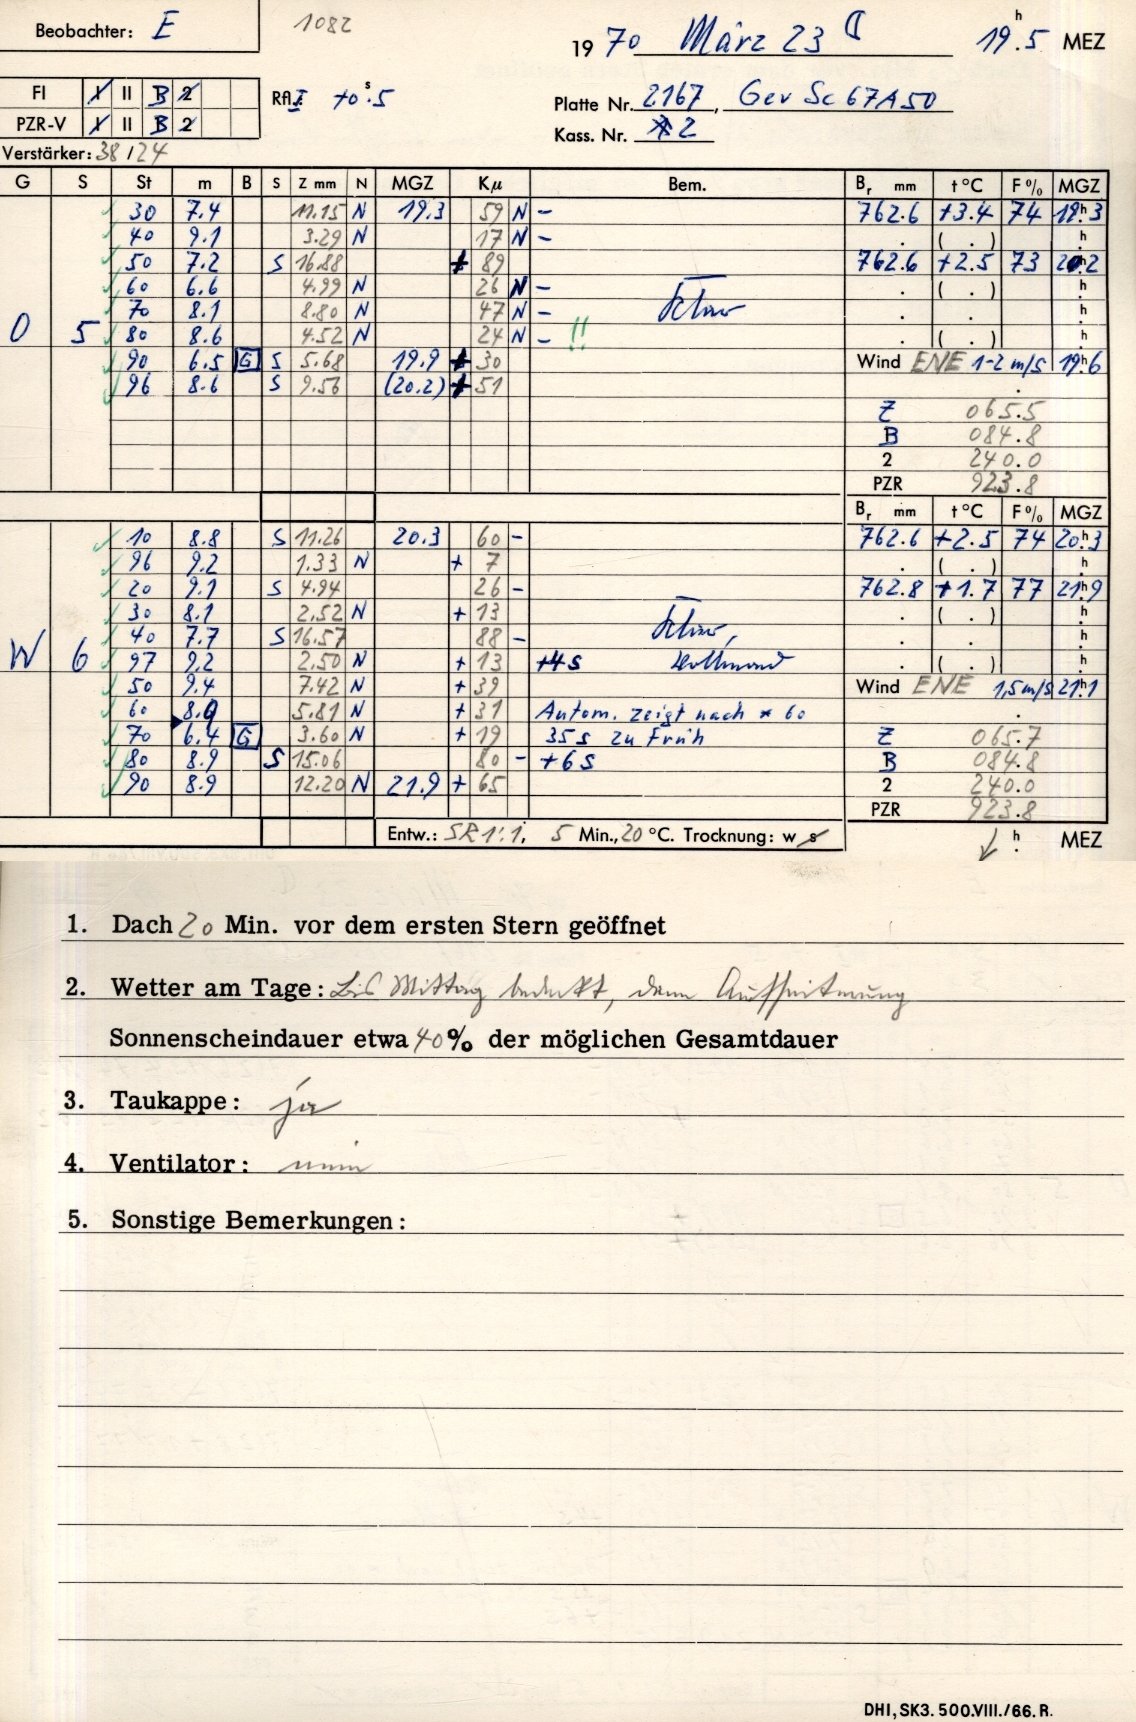 Beobachter: E 1082
19 70 März 23 19h.5 MEZ
FI I II B 2 Rfl. I +0s.5 Platte Nr. 2167, Gev Sc 67A50
PZR-V I II B 2 Kass. Nr. 2
Verstärker: 38/24
G S St m B S Z mm N MGZ Kµ Bem. Br mm t °C F % MGZ
30 7.4 11.15 N 19.3 59 N – 762.6 +3.4 74 19h.3
40 9.1 3.29 N 17 N – . ( . ) h.
50 7.2 S 16.88 + 89 762.6 +2.5 73 20h.2
60 6.6 4.99 N 26 N – . ( . ) h.
70 8.1 8.80 N 47 N – . . h.
O 5 80 8.6 4.52 N 24 N – !! . ( . ) h.
90 6.5 G S 5.68 19.9 + 30 Wind ENE 1-2 m/s 19h.6
96 8.6 S 9.56 (20.2) + 51 .
Z 065.5
B 084.8
2 240.0
PZR 923.8
Br mm t °C F % MGZ
10 8.8 S 11.26 20.3 60 – 762.6 +2.5 74 20h.3
96 9.2 1.33 N + 7 . ( . ) h.
20 9.1 S 4.94 26 – 762.8 +1.7 77 21h.9
30 8.1 2.52 N + 13 . ( . ) h.
40 7.7 S 16.57 88 – . . h.
W 6 97 9.2 2.50 N + 13 +4s Vollmond . ( . ) h.
50 9.4 7.42 N + 39 Wind ENE 1,5 m/s 21h.1
60 8.9 5.81 N + 31 Autom. zeigt nach * 60 .
70 6.4 G 3.60 N + 19 35s zu früh Z 065.7
80 8.9 S 15.06 80 – +6s B 084.8
90 8.9 12.20 N 21.9 + 65 2 240.0
PZR 923.8
Entw.: SR 1:1, 5 Min., 20 °C. Trocknung: w s h. MEZ
1. Dach 20 Min. vor dem ersten Stern geöffnet
2. Wetter am Tage: bis Mittag bedeckt, dann Aufheiterung
Sonnenscheindauer etwa 40% der möglichen Gesamtdauer
3. Taukappe: ja
4. Ventilator: nein
5. Sonstige Bemerkungen:
DHI, SK3. 500.VIII./66. R.